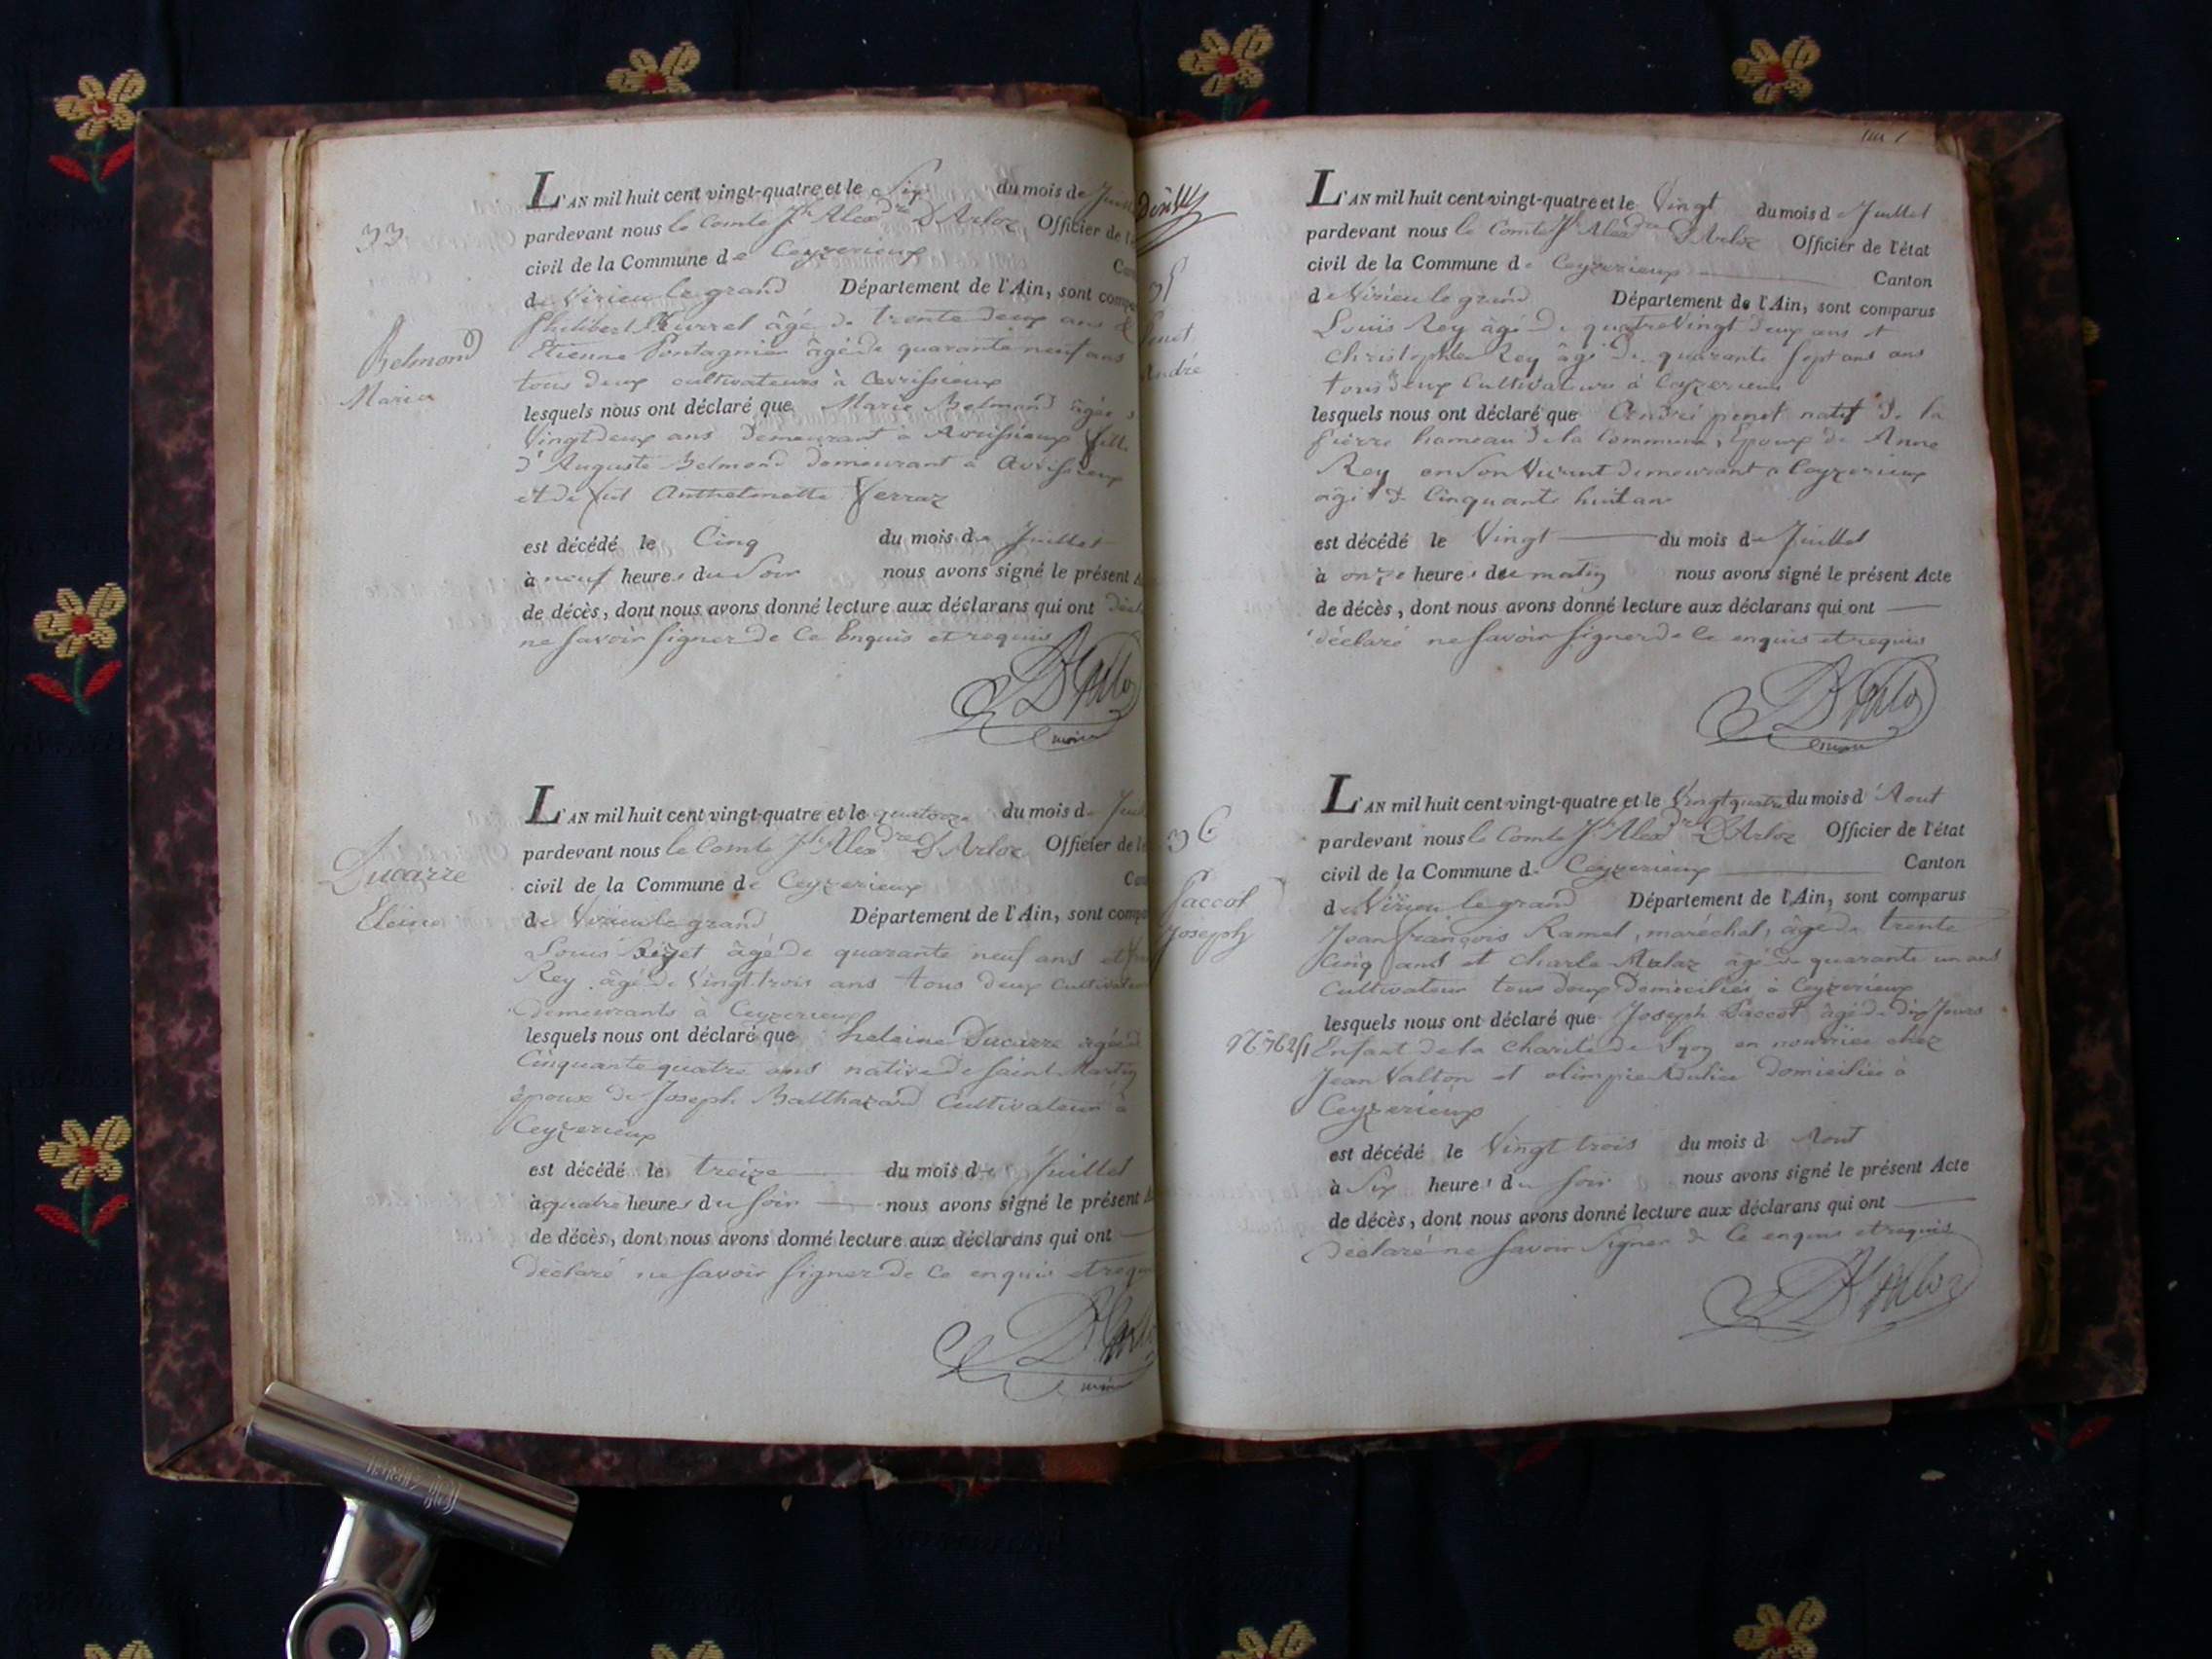 33
Belmond
Marie
L'AN mil huit cent vingt-quatre et le Six du mois de Juill
pardevant nous le Comte Jh Alexdre D'Arloz Officier de l'
civil de la Commune de Ceyzerieux
de Virieu le grand Département de l'Ain, sont compa
Philibert âgé de trente deux ans &
Etienne Pontagnier âgé de quarante neuf ans
tous deux cultivateurs à Avrissieux
lesquels nous ont déclaré que Marie Belmond âgée
Vingt deux ans demeurant à Avrissieux fille
d'Auguste Belmond demeurant à Avrissieux
et de Anthelmette Verraz
est décédé le Cinq du mois de Juillet
à neuf heures du Soir nous avons signé le présent A
de décès, dont nous avons donné lecture aux déclarans qui ont décl
ne savoir signer de ce Enquis et requis
D'Arloz
maire
Ducarre
Eleine
L'AN mil huit cent vingt-quatre et le quatorze du mois de Juil
pardevant nous le Comte Jh Alexdre D'Arloz Officier de l'é
civil de la Commune de Ceyzerieux Can
de Virieu le grand Département de l'Ain, sont compa
Louis âgé de quarante neuf ans et
Rey âgé de Vingt trois ans tous deux Cultivateurs
demeurants à Ceyzerieux
lesquels nous ont déclaré que heleine Ducarre âgée d
Cinquante quatre ans native de Saint Martin
épouse de Joseph Balthazard Cultivateur à
Ceyzerieux
est décédé le treize du mois de Juillet
à quatre heures du Soir nous avons signé le présent A
de décès, dont nous avons donné lecture aux déclarans qui ont
déclaré ne savoir signer de ce enquis et requi
D'Arlo
maire
35
Penet
André
L'AN mil huit cent vingt-quatre et le Vingt du mois de Juillet
pardevant nous le Comte Jh Alexdre D'Arloz Officier de l'état
civil de la Commune de Ceyzerieux Canton
de Virieu le grand Département de l'Ain, sont comparus
Louis Rey âgé de quatre Vingt deux ans et
Christophle Rey âgé de quarante Sept ans ans
tous deux Cultivateurs à Ceyzerieux
lesquels nous ont déclaré que André penet natif de la
pierre hameau de la Commune, Epoux de Anne
Rey en son Vivant demeurant à Ceyzerieux
âgé de Cinquante huit ans
est décédé le Vingt du mois de Juillet
à onze heures du matin nous avons signé le présent Acte
de décès, dont nous avons donné lecture aux déclarans qui ont
déclaré ne savoir signer de ce enquis et requis
D'Arloz
maire
36
Paccot
Joseph
L'AN mil huit cent vingt-quatre et le Vingt quatre du mois d'Aout
pardevant nous le Comte Jh Alexdre D'Arloz Officier de l'état
civil de la Commune de Ceyzerieux Canton
de Virieu le grand Département de l'Ain, sont comparus
Jean françois Ramel, maréchal, âgé de trente
Cinq ans et Charle Malaz âgé de quarante un ans
Cultivateur tous deux Domiciliés à Ceyzerieux
lesquels nous ont déclaré que Joseph Paccot âgé de dix Jours
Enfant de la Charité de Lyon en nourrice chez
Jean Valton et olimpie domiciliés à
Ceyzerieux
est décédé le Vingt trois du mois d Aout
à Six heures du Soir nous avons signé le présent Acte
de décès, dont nous avons donné lecture aux déclarans qui ont
Déclaré ne Savoir Signer de Ce enquis et requis
D'Arloz